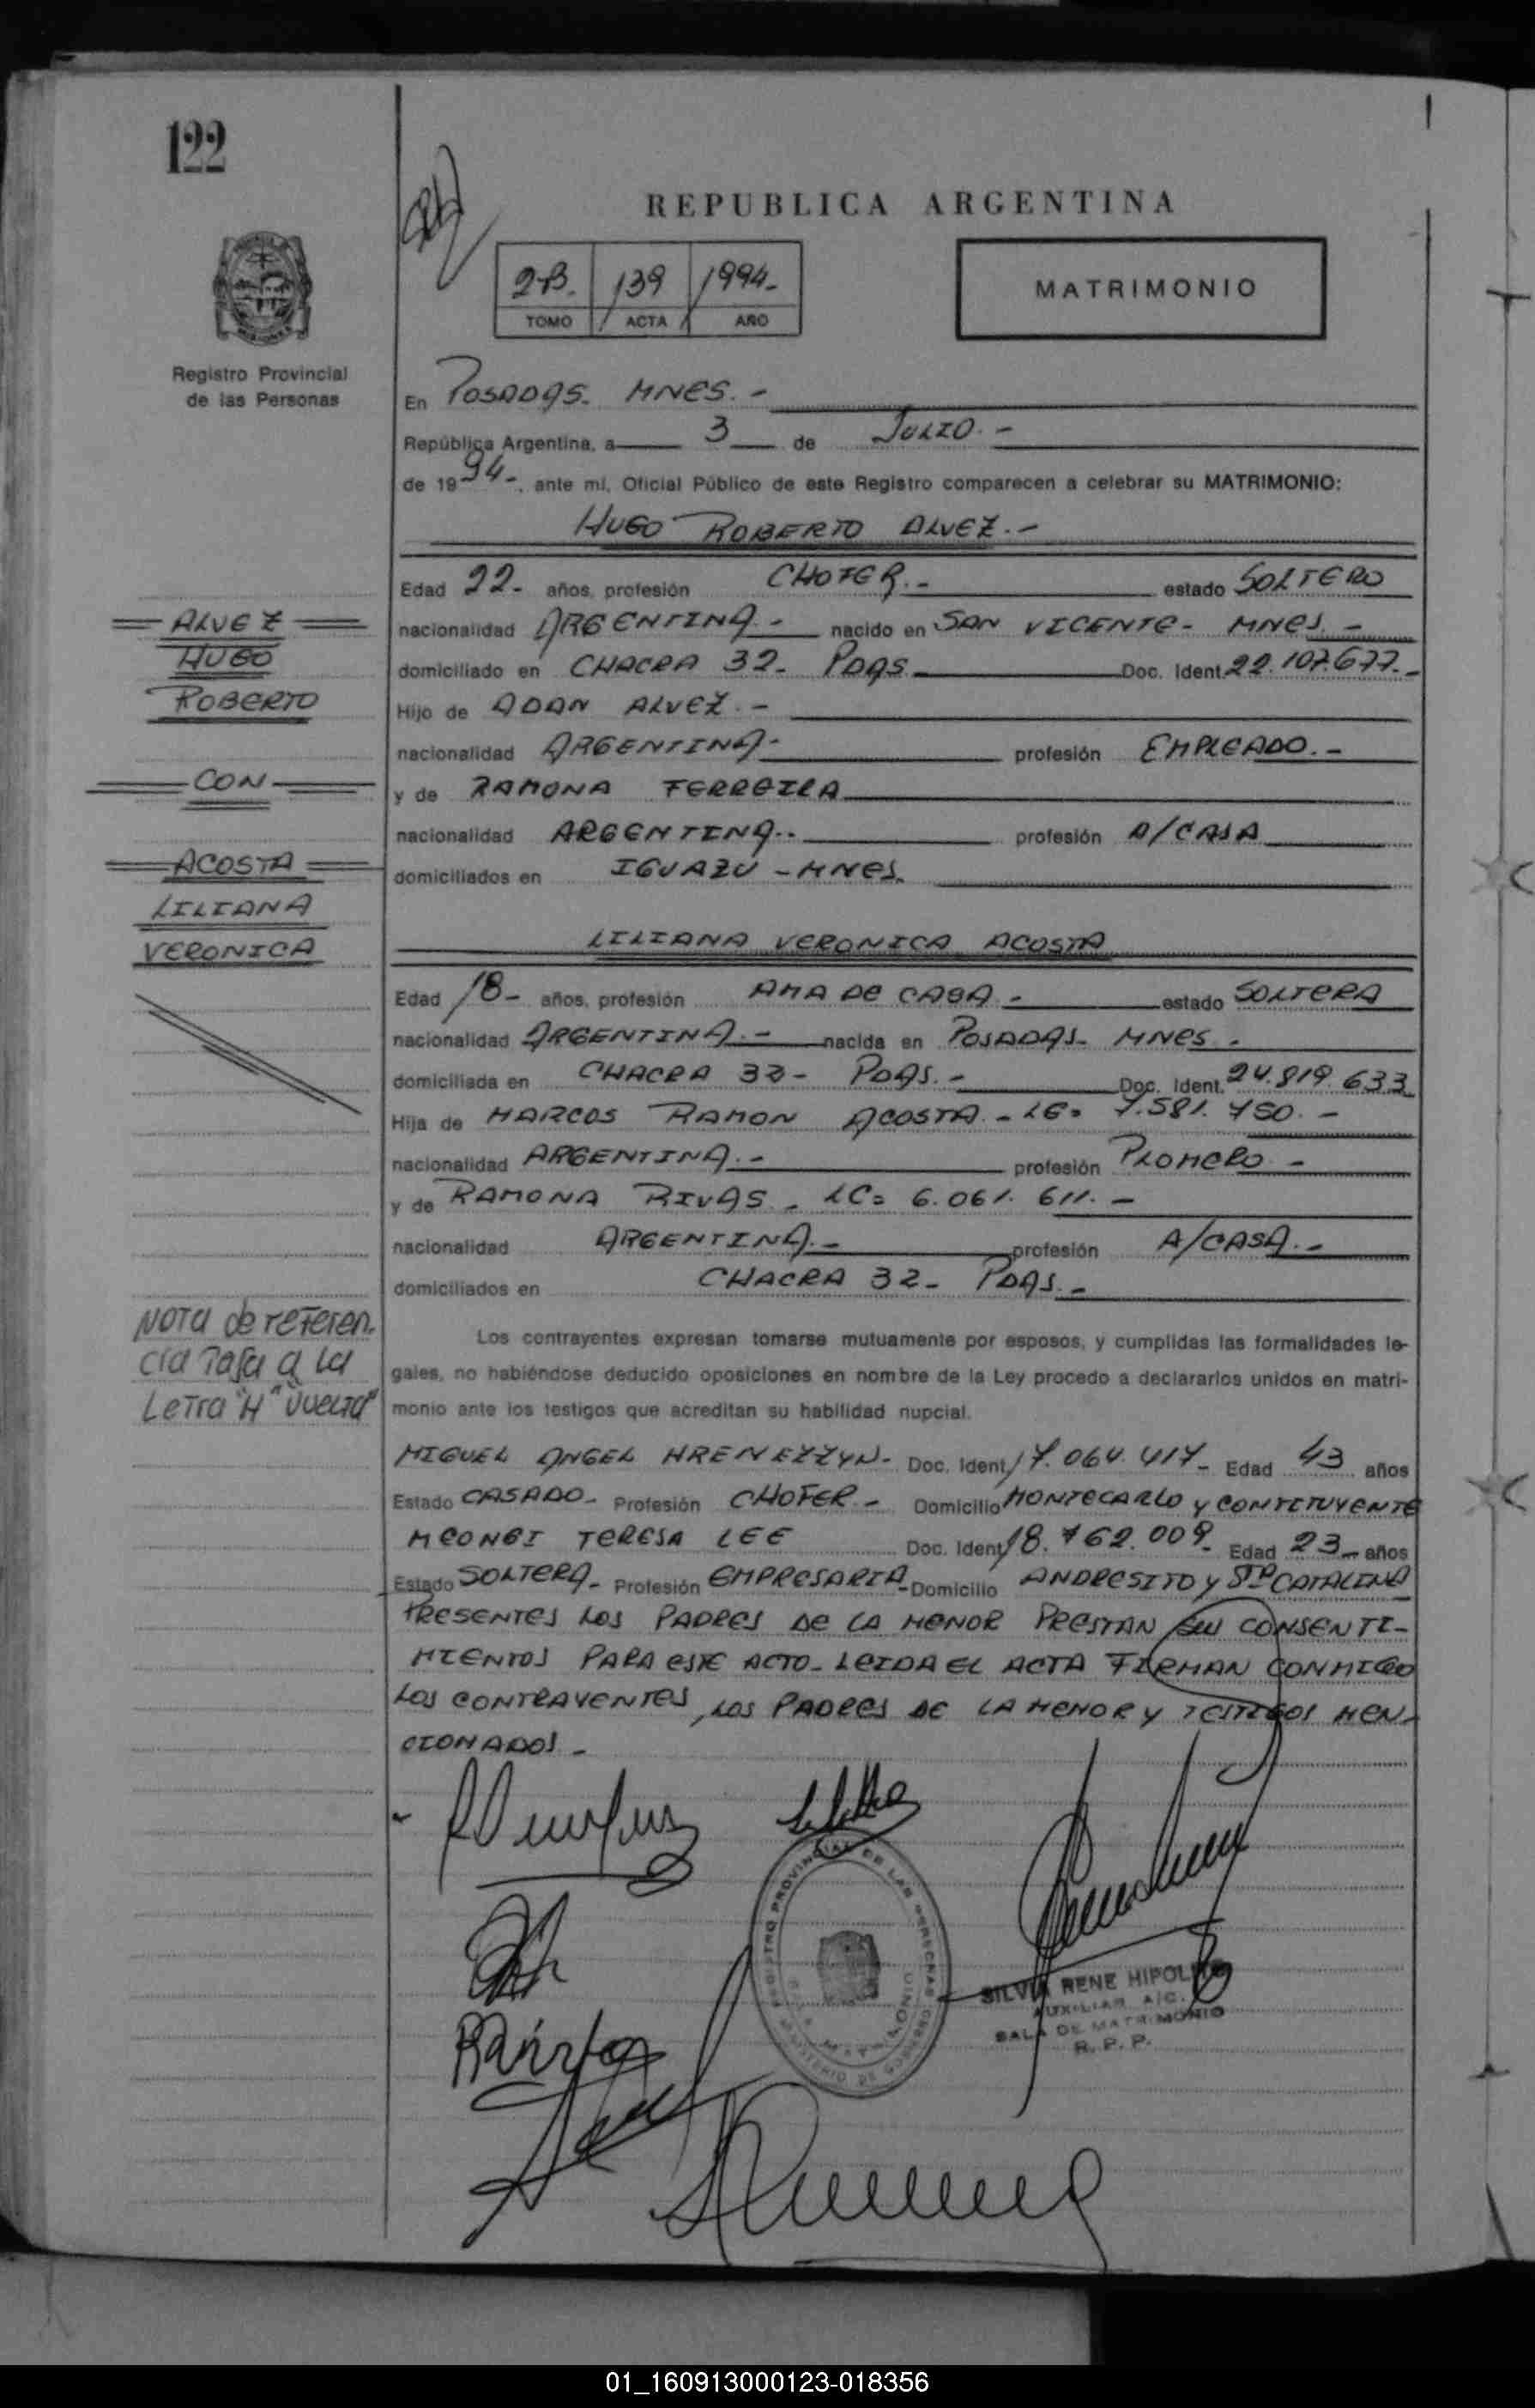 122
REPUBLICA ARGENTINA
2-B. 139 1994.-
TOMO ACTA AÑO
MATRIMONIO
Registro Provincial
de las Personas
En POSADAS. MNES. -
República Argentina, a 3 de JULIO. -
de 1994-, ante mí, Oficial Público de este Registro comparecen a celebrar su MATRIMONIO:
HUGO ROBERTO ALVEZ. -
Edad 22- años, profesión CHOFER. - estado SOLTERO
nacionalidad ARGENTINA - nacido en SAN VICENTE - MNES. -
domiciliado en CHACRA 32- PDAS. Doc. Ident. 22.107.677.-
Hijo de ADAN ALVEZ. -
nacionalidad ARGENTINA- profesión EMPLEADO. -
y de RAMONA FERREIRA
nacionalidad ARGENTINA.. profesión A/CASA
domiciliados en IGUAZU - MNES.
ALVEZ
HUGO
ROBERTO
CON
ACOSTA
LILIANA
VERONICA
LILIANA VERONICA ACOSTA
Edad 18- años, profesión AMA DE CASA - estado SOLTERA
nacionalidad ARGENTINA. - nacida en POSADAS- MNES -
domiciliada en CHACRA 32- PDAS. - Doc. Ident. 24.819.633
Hija de MARCOS RAMON ACOSTA - LE= 7.581.750. -
nacionalidad ARGENTINA. - profesión PLOMERO -
y de RAMONA RIVAS - LC= 6.061.611. -
nacionalidad ARGENTINA. - profesión A/CASA. -
domiciliados en CHACRA 32- PDAS. -
NOTA de referen.
cia Pasa a la
Letra "H" "Vuelta"
Los contrayentes expresan tomarse mutuamente por esposos, y cumplidas las formalidades le-
gales, no habiéndose deducido oposiciones en nombre de la Ley procedo a declararlos unidos en matri-
monio ante los testigos que acreditan su habilidad nupcial.
MIGUEL ANGEL Doc. Ident. 17.064.417- Edad 43 años
Estado CASADO- Profesión CHOFER. - Domicilio MONTECARLO y CONTITUYENTE
TERESA LEE Doc. Ident. 18.762.009- Edad 23- años
Estado SOLTERA- Profesión EMPRESARIA- Domicilio ANDRESITO y STA CATALINA
PRESENTES LOS PADRES DE LA MENOR PRESTAN SU CONSENTI-
MIENTOS PARA ESTE ACTO- LEIDA EL ACTA FIRMAN CONMIGO
LOS CONTRAYENTES, LOS PADRES DE LA MENOR y TESTIGOS MEN-
CIONADOS -
REGISTRO PROVINCIAL DE LAS PERSONAS
MINISTERIO DE GOBIERNO
MATRIMONIO
SILVIA RENE HIPOLITO
AUXILIAR A/C.
SALA DE MATRIMONIO
R. P. P.
01_160913000123-018356